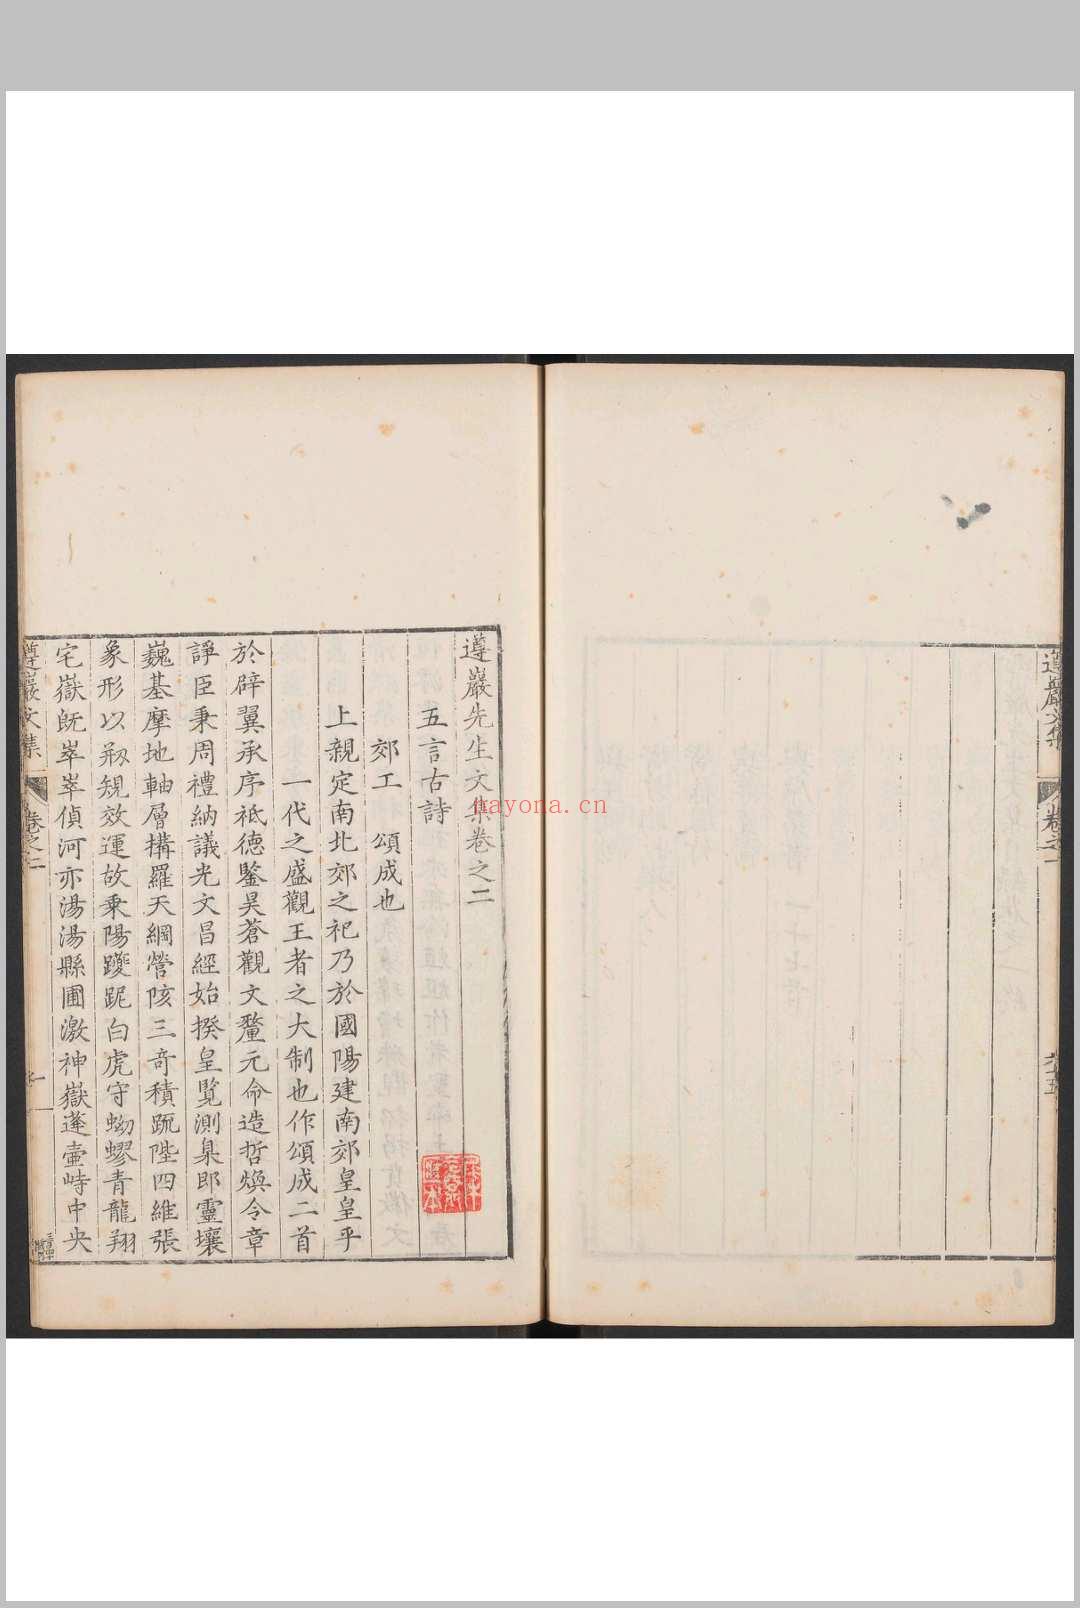 遵巖文集
卷之一
六十五
遵巖先生文集卷之二
五言古詩
郊工　頌成也
上親定南北郊之祀乃於國陽建南郊皇皇乎
一代之盛觀王者之大制也作頌成二首
於辟翼承序祗德鑒昊蒼觀文釐元命造哲煥令章
諍臣秉周禮納議光文昌經始揆皇覽測臬郎靈壤
巍基摩地軸層構羅天綱營陔三奇積䟽陛四維張
象形以剏䂓效運故乗陽躨跜白虎守蚴蟉青龍翔
宅嶽旣崒崒偵河亦湯湯縣圃激神嶽蓬壷峙中央
遵巖文集
卷之二
一
nayona.cn